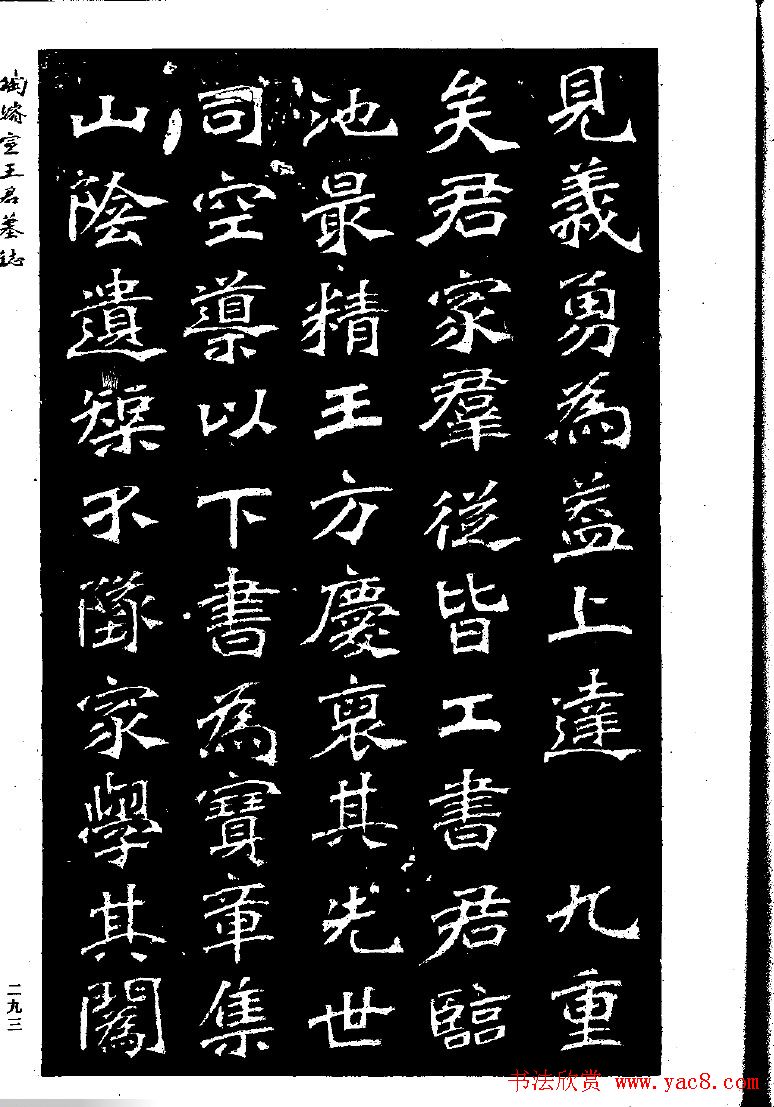 見義勇為益上達　九重
矣君家羣從皆工書君臨
池最精王方慶裒其先世
司空導以下書為寶章集
山陰遺榘不隊家學其闟
陶濬宣王君墓誌
二九三
书法欣赏 www.yac8.com